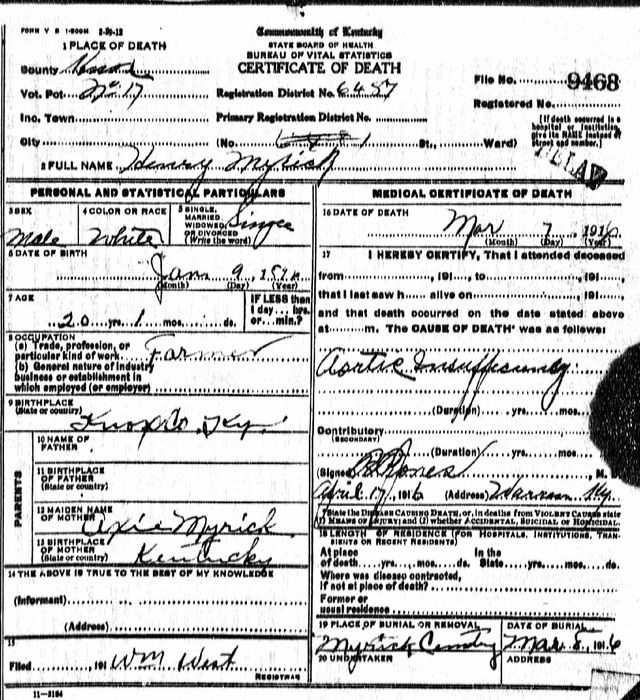 FORM V S 1-500M 2-20-12
Commonwealth of Kentucky
STATE BOARD OF HEALTH
BUREAU OF VITAL STATISTICS
CERTIFICATE OF DEATH
1 PLACE OF DEATH
County Knox
Vot. Pct. No 17
Registration District No. 6457
File No. 9468
Inc. Town
Primary Registration District No.
Registered No.
City (No. St., Ward)
[If death occurred in a hospital or institution, give its NAME instead of street and number.]
2 FULL NAME Henry Myrick
PERSONAL AND STATISTICAL PARTICULARS
3 SEX Male
4 COLOR OR RACE White
5 SINGLE, MARRIED, WIDOWED OR DIVORCED (Write the word) Single
6 DATE OF BIRTH
Jan 9
(Month) (Day) (Year)
7 AGE
20 yrs. 1 mos. ds.
IF LESS than 1 day ... hrs. or ... min.?
8 OCCUPATION
(a) Trade, profession, or particular kind of work Farmer
(b) General nature of industry business or establishment in which employed (or employer)
9 BIRTHPLACE
(State or country)
Knox Co. Ky.
PARENTS
10 NAME OF FATHER
11 BIRTHPLACE OF FATHER (State or country)
12 MAIDEN NAME OF MOTHER Myrick
13 BIRTHPLACE OF MOTHER (State or country) Kentucky
14 THE ABOVE IS TRUE TO THE BEST OF MY KNOWLEDGE
(Informant)
(Address)
15
Filed 191 WM West
REGISTRAR
11-3184
MEDICAL CERTIFICATE OF DEATH
16 DATE OF DEATH
Mar 7 1916
(Month) (Day) (Year)
17 I HEREBY CERTIFY, That I attended deceased
from 191 , to 191 ,
that I last saw h alive on 191 ,
and that death occurred on the date stated above
at m. The CAUSE OF DEATH* was as follows:
Aortic Insufficiency
(Duration) yrs. mos.
Contributory
(SECONDARY)
(Duration) yrs. mos.
(Signed) Jones , M.
April 17, 1916 (Address) Ky.
*State the DISEASE CAUSING DEATH, or, in deaths from VIOLENT CAUSES state
(1) MEANS OF INJURY; and (2) whether ACCIDENTAL, SUICIDAL or HOMICIDAL.
18 LENGTH OF RESIDENCE (FOR HOSPITALS, INSTITUTIONS, TRANSIENTS OR RECENT RESIDENTS)
At place of death yrs. mos. ds. In the State yrs. mos. ds.
Where was disease contracted,
If not at place of death?
Former or
usual residence
19 PLACE OF BURIAL OR REMOVAL
Myrick Cemetry
DATE OF BURIAL
Mar 8, 1916
20 UNDERTAKER
ADDRESS